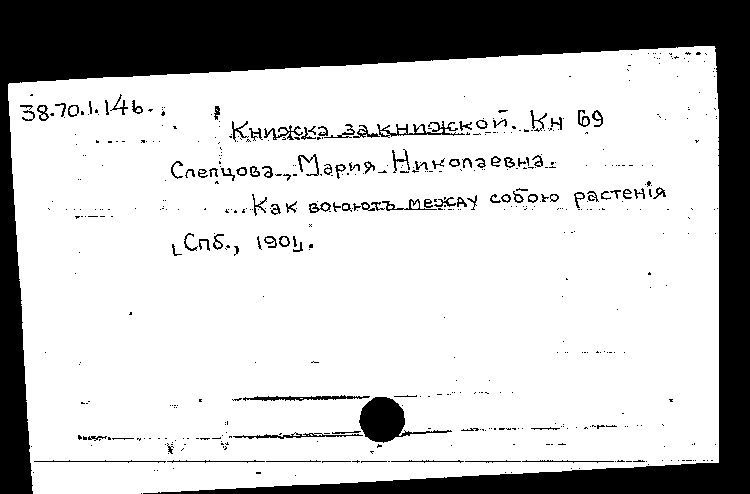 38.70.1.146.
Книжка за книжкой. Кн 69
Слепцова, Мария Николаевна.
... Как воюютъ между собою растенія
Спб., 1904.